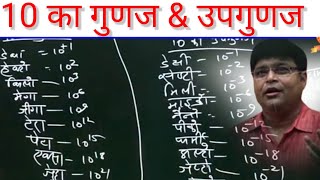 10 का गुणज & उपगुणज
डेका — 10¹
हेक्टो — 10²
किलो — 10³
मेगा — 10⁶
जीगा — 10⁹
टेरा — 10¹²
पेटा — 10¹⁵
एक्सा — 10¹⁸
10²¹
10 का
डेसी — 10⁻¹
सेण्टी — 10⁻²
मिली — 10⁻³
माइक्रो
नैनो
पीको — 10⁻¹²
10⁻¹⁵
10⁻¹⁸
10⁻²¹